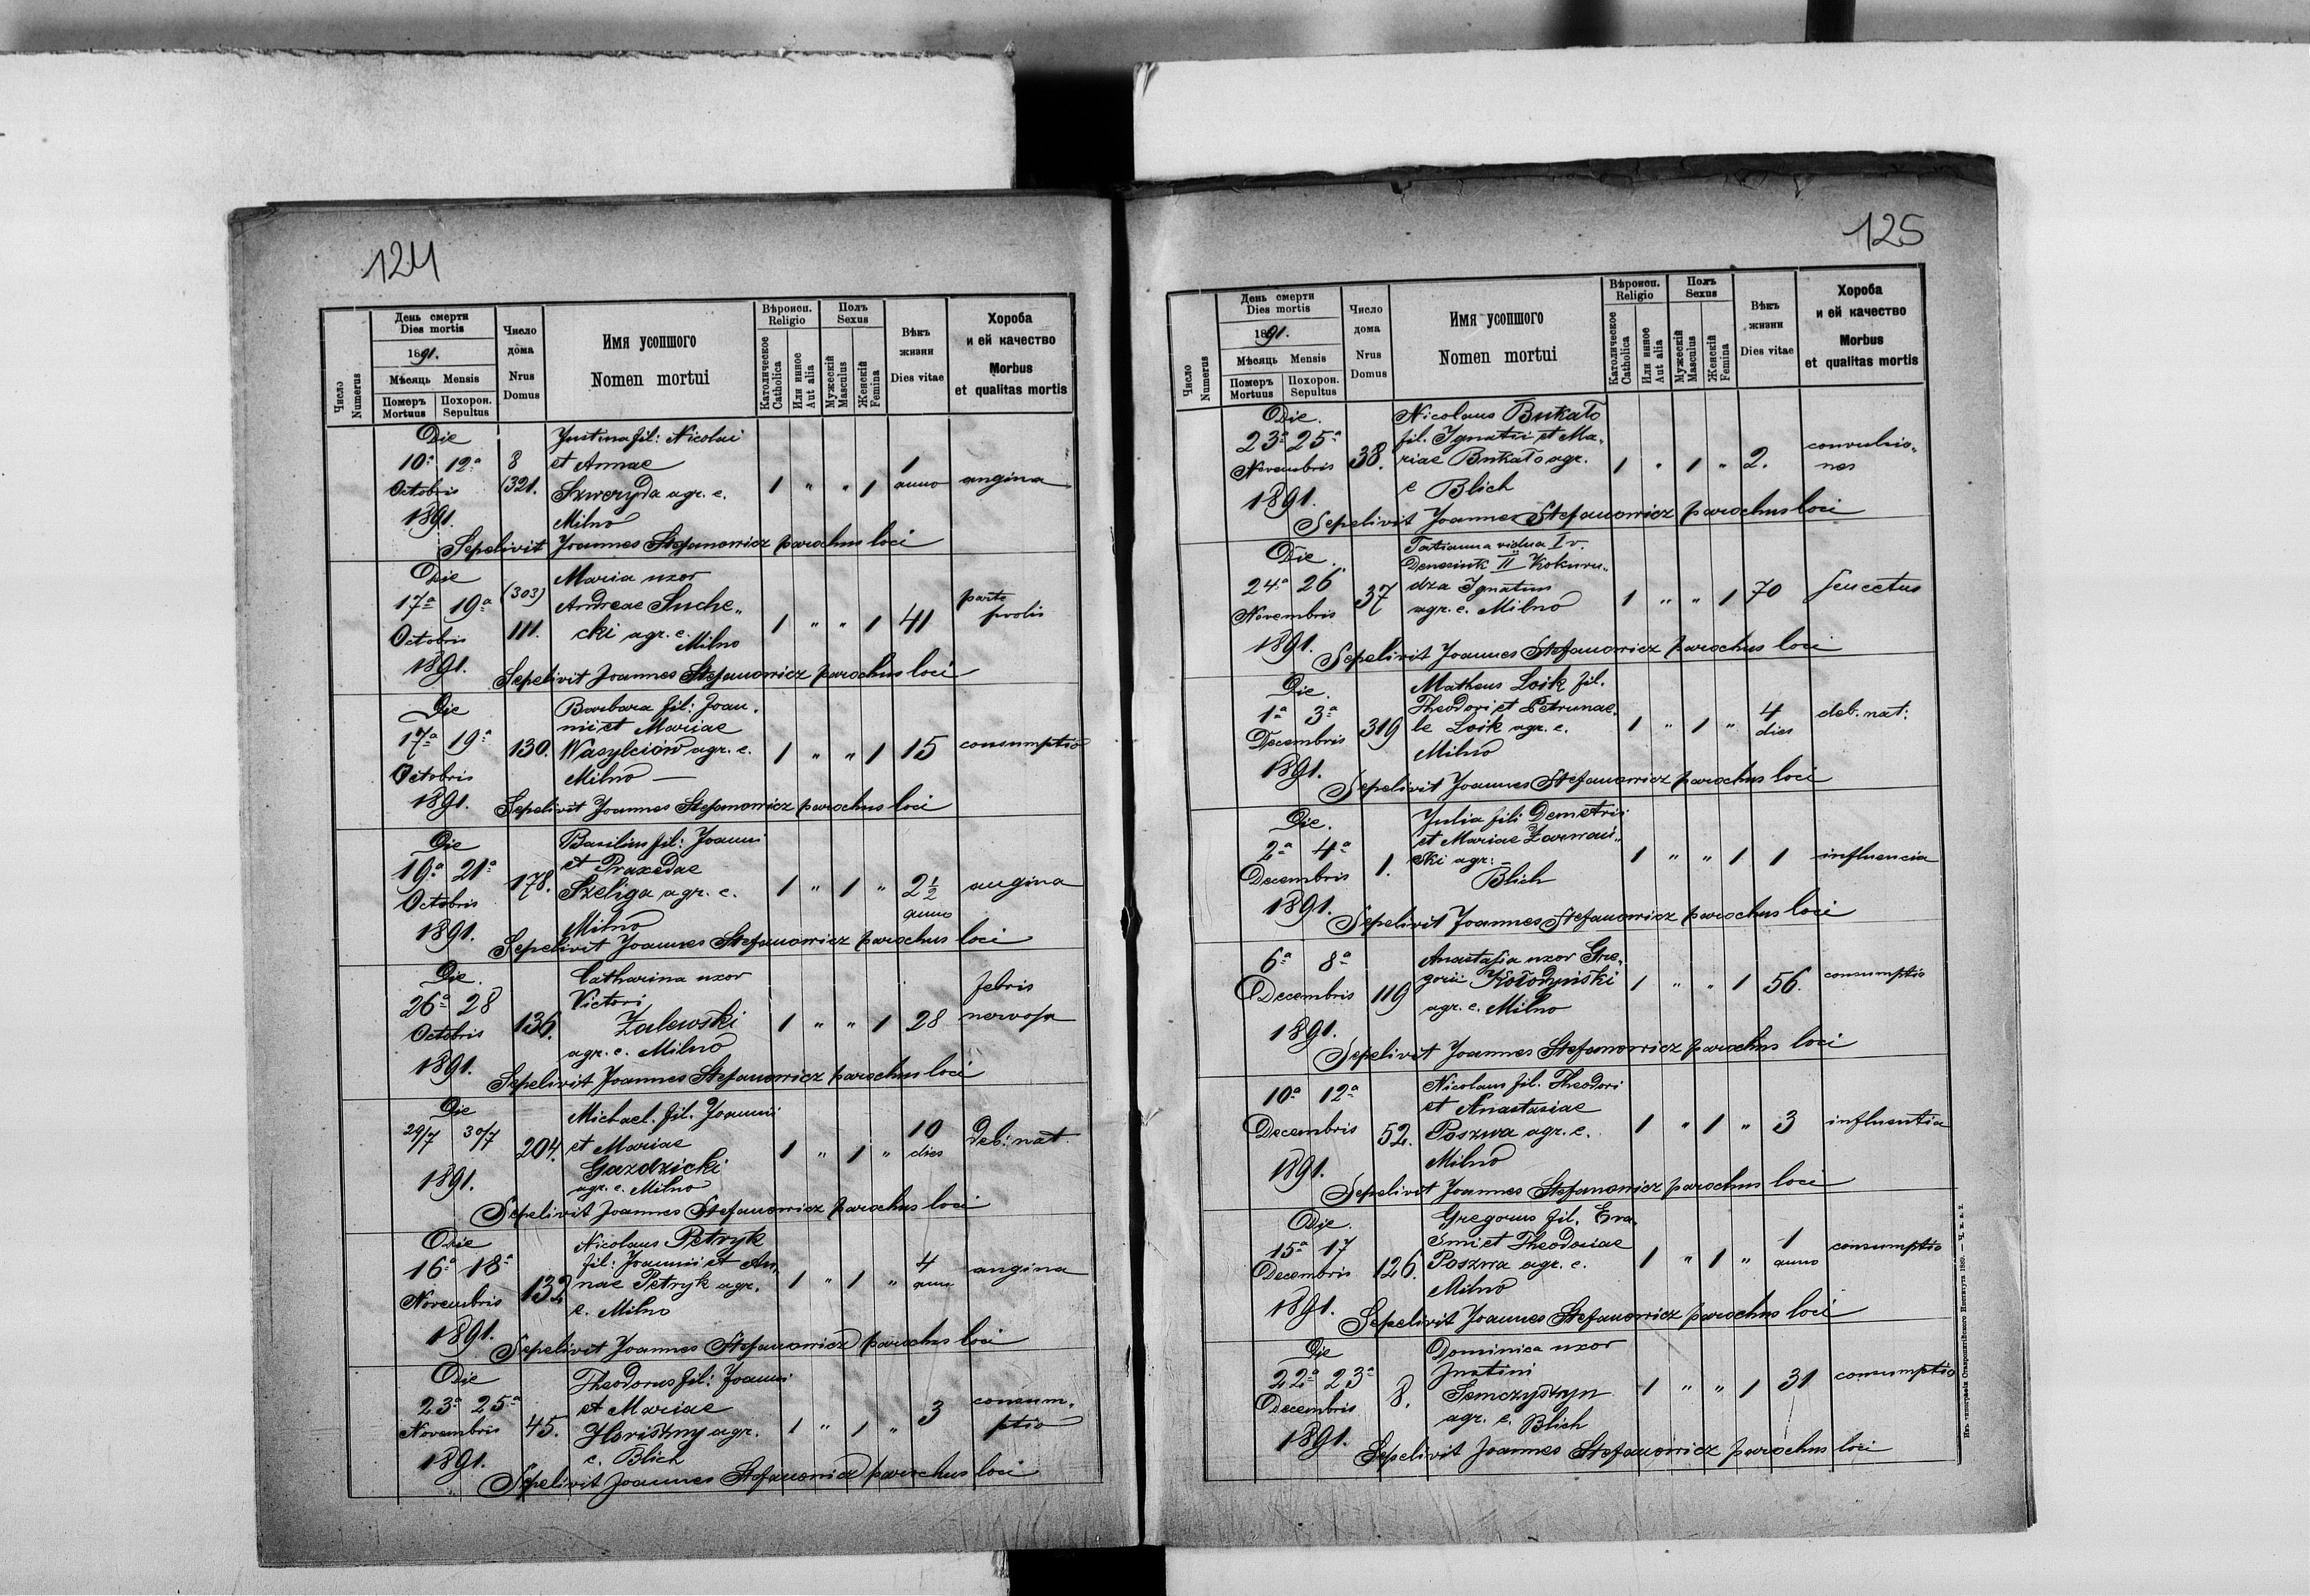 124
День смерти
Dies mortis
1891.
Мѣсяць Mensis
Число
Numerus
Померъ
Mortuus
Похорон.
Sepultus
Число
дома
Nrus
Domus
Имя усопшого
Nomen mortui
Вѣроисп.
Religio
Католическое
Catholica
Или инное
Aut alia
Полъ
Sexus
Мужескій
Masculus
Женскій
Femina
Вѣкъ
жизни
Dies vitae
Хороба
и ей качество
Morbus
et qualitas mortis
Die Justina fil: Nicolai
10ª 12ª 8 et Annae 1
Octobris (321. Szweryda agr. e. 1 " " 1 anno angina
1891. Milno
Sepelivit Joannes Stefanowicz parochus loci
Die (303) Maria uxor
17ª 19ª Andreae Suche„ parte
Octobris 111. cki agr. e. Milno 1 " " 1 41 prolis
1891. Sepelivit Joannes Stefanowicz parochus loci
Die Barbara fil: Joan„
17ª 19ª ni et Mariae
130. Wasylciów agr. e. 1 " " 1 15 consumptio
Octobris Milno —
1891. Sepelivit Joannes Stefanowicz parochus loci
Die Basilius fil: Joanni
19ª 21ª et Praxedae
Octobris 178. Szeliga agr. e. 1 " 1 " 2 1/2 anno angina
1891. Milno
Sepelivit Joannes Stefanowicz parochus loci
Die. Catharina uxor febris
26ª 28 Victori
Octobris 136. Zalewski 1 " " 1 28 nervosa
agr. e. Milno
1891. Sepelivit Joannes Stefanowicz parochus loci
Die Michael. fil. Joanni
29/7 30/7 204. et Mariae 1 " 1 " 10 dies deb: nat.
Gazdzicki
1891. agr. e. Milno
Sepelivit Joannes Stefanowicz parochus loci
Die Nicolaus Petryk
16ª 18ª fil: Joanni et An„ 4
Novembris 132 nae Petryk agr. 1 " 1 " anno angina
e. Milno
1891. Sepelivit Joannes Stefanowicz parochus loci
Die Theodorus fil: Joanni
23ª 25ª et Mariae consum„
Novembris 45. Horiszny agr. 1 " 1 " 3 ptio
1891. e. Blich
Sepelivit Joannes Stefanowicz parochus loci
125
День смерти
Dies mortis
1891.
Мѣсяць Mensis
Число
Numerus
Померъ
Mortuus
Похорон.
Sepultus
Число
дома
Nrus
Domus
Имя усопшого
Nomen mortui
Вѣроисп.
Religio
Католическое
Catholica
Или инное
Aut alia
Полъ
Sexus
Мужескій
Masculus
Женскій
Femina
Вѣкъ
жизни
Dies vitae
Хороба
и ей качество
Morbus
et qualitas mortis
Die. Nicolaus Bukało
23ª 25ª fil. Ignatii et Ma„ convulsio„
Novembris 38. riae Bukało agr. 1 " 1 " 2. nes
1891. e Blich
Sepelivit Joannes Stefanowicz parochus loci
Die. Tatianna vidua I v.
24ª 26 II Kokuru„
Novembris 37 dza Ignatius 1 " " 1 70
agr. e. Milno
1891. Sepelivit Joannes Stefanowicz parochus loci
Die. Matheus Loik fil.
1ª 3ª Theodori et Petrunae„ 4 deb. nat:
Decembris 319 le Loik agr. e. 1 " 1 " dies
Milno
1891. Sepelivit Joannes Stefanowicz parochus loci
Die. Julia fil: Demetrii
2ª 4ª et Mariae
Decembris 1. ski agr: 1 " " 1 1 influencia
Blich
1891. Sepelivit Joannes Stefanowicz parochus loci
6ª 8ª Anastasia uxor Gre„
Decembris 119 gorii Kołodyński 1 " " 1 56. consumptio
agr. e. Milno
1891. Sepelivit Joannes Stefanowicz parochus loci
10ª 12ª Nicolaus fil. Theodori
et Anastasiae
Decembris 52. Poszwa agr. e. 1 " 1 " 3 influentia
Milno
1891. Sepelivit Joannes Stefanowicz parochus loci
Die. Gregorius fil.
15ª 17 et Theodosiae 1 consumptio
Decembris 126. Poszwa agr. e. 1 " 1 " anno
Milno
1891. Sepelivit Joannes Stefanowicz parochus loci
Die Dominica uxor
22ª 23ª Justini
Decembris 8. Semczyszyn 1 " " 1 31 consumptio
agr. e. Blich
1891. Sepelivit Joannes Stefanowicz parochus loci
Изъ типографіи Ставропигійского Института 1889. — Ч. к. в. 2.